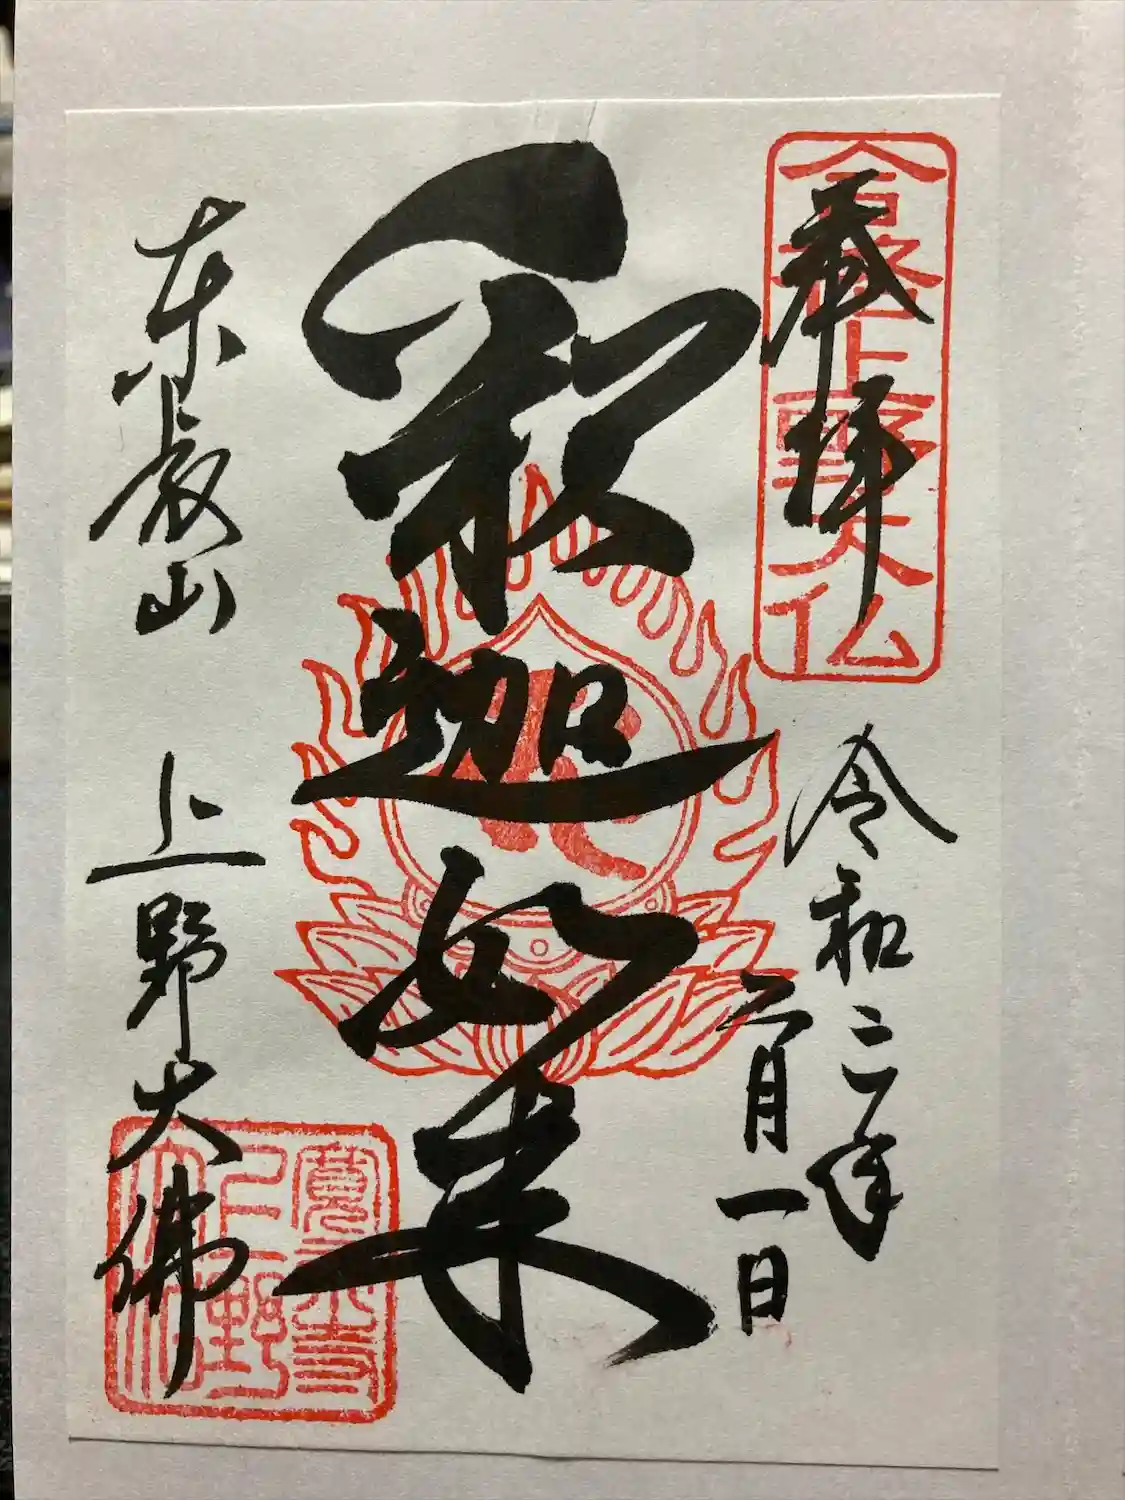 奉拝
合格上野大仏
令和二年
二月一日
釈迦如来
東叡山 上野大佛
寛永寺
上野
大佛